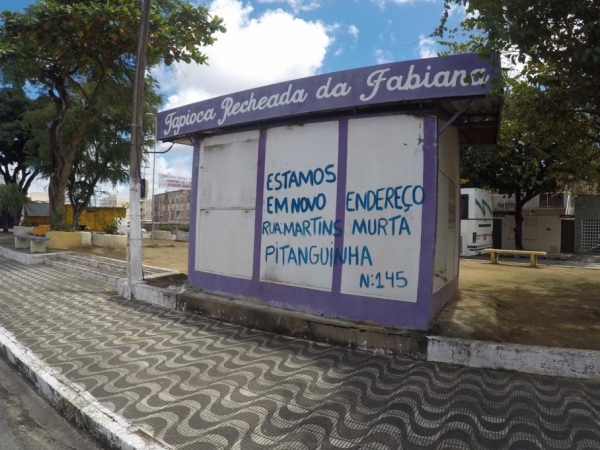 Tapioca Recheada da Fabiana
ESTAMOS
EM NOVO ENDEREÇO
RUA.MARTINS MURTA
PITANGUINHA
N:145